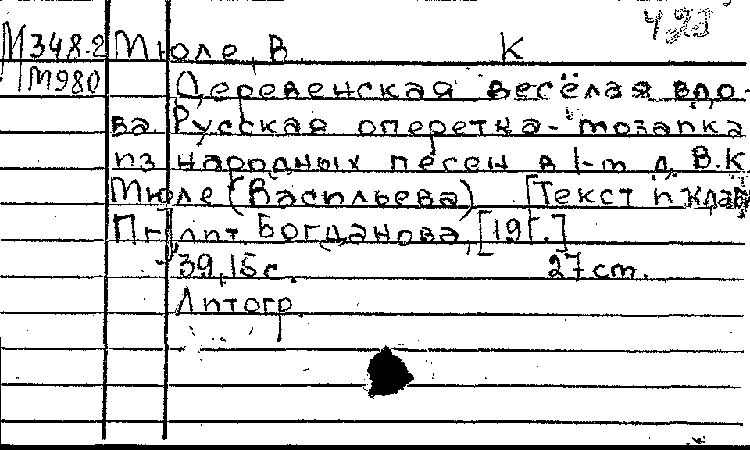 423
М348-2 Мюле, В. К
М980 Деревенская весёлая вдо-
ва. Русская оперетка-мозаика
из народных песен в 1-м д. В.К
Мюле (Васильева) [Текст и клав
Пг, лит. Богданова, [19г.]
39,15 с. 27 cm.
Литогр.